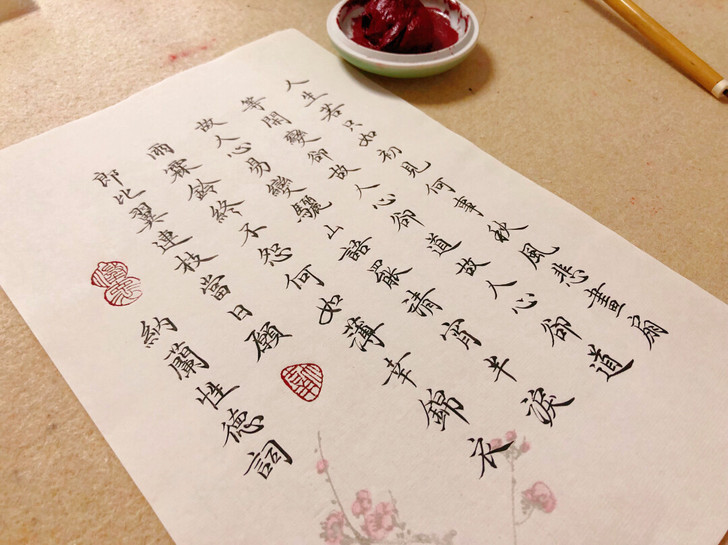 人生若只如初見何事秋風悲畫扇
等閒變卻故人心卻道故人心卻道
故人心易變驪山語罷清宵半淚
雨霖鈴終不怨何如薄幸錦衣
郎比翼連枝當日願
納蘭性德詞